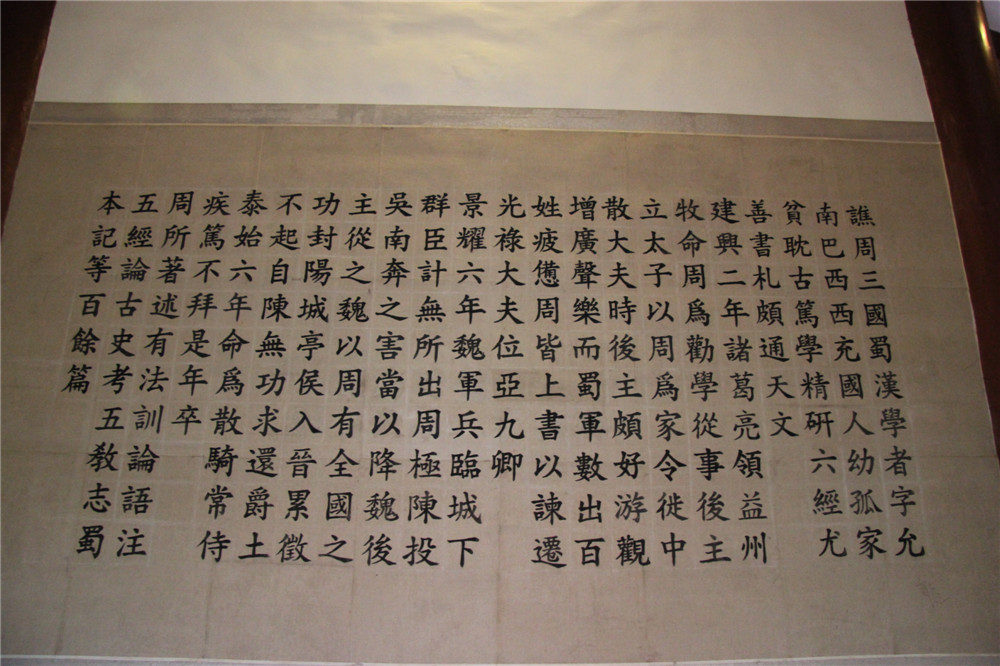 譙周三國蜀漢學者字允
南巴西西充國人幼孤家
貧耽古篤學精研六經尤
善書札頗通天文
建興二年諸葛亮領益州
牧命周爲勸學從事後主
立太子以周爲家令徙中
散大夫時後主頗好游觀
增廣聲樂而蜀軍數出百
姓疲憊周皆上書以諫遷
光祿大夫位亞九卿
景耀六年魏軍兵臨城下
群臣計無所出周極陳投
吳南奔之害當以降魏後
主從之魏以周有全國之
功封陽城亭侯入晉累徵
不起自陳無功求還爵土
泰始六年命爲散騎常侍
疾篤不拜是年卒
周所著述有法訓論語注
五經論古史考五教志蜀
本記等百餘篇